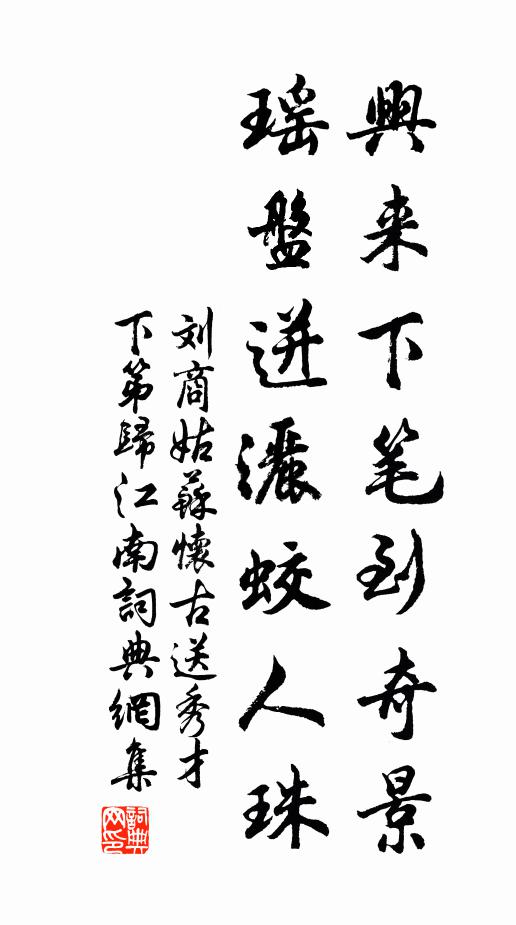 興来下笔到奇景
瑶盤迸灑蛟人珠
刘商姑蘇懷古送秀才
下第歸江南詞典網集
詞典
网印